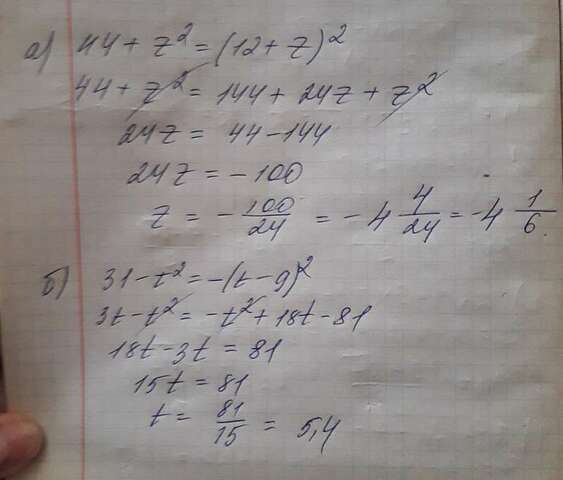 а) 44 + z² = (12 + z)²
44 + z² = 144 + 24z + z²
24z = 44 - 144
24z = - 100
z = - 100/24 = - 4 4/24 = - 4 1/6.
б) 3t - t² = -(t - 9)²
3t - t² = -t² + 18t - 81
18t - 3t = 81
15t = 81
t = 81/15 = 5,4